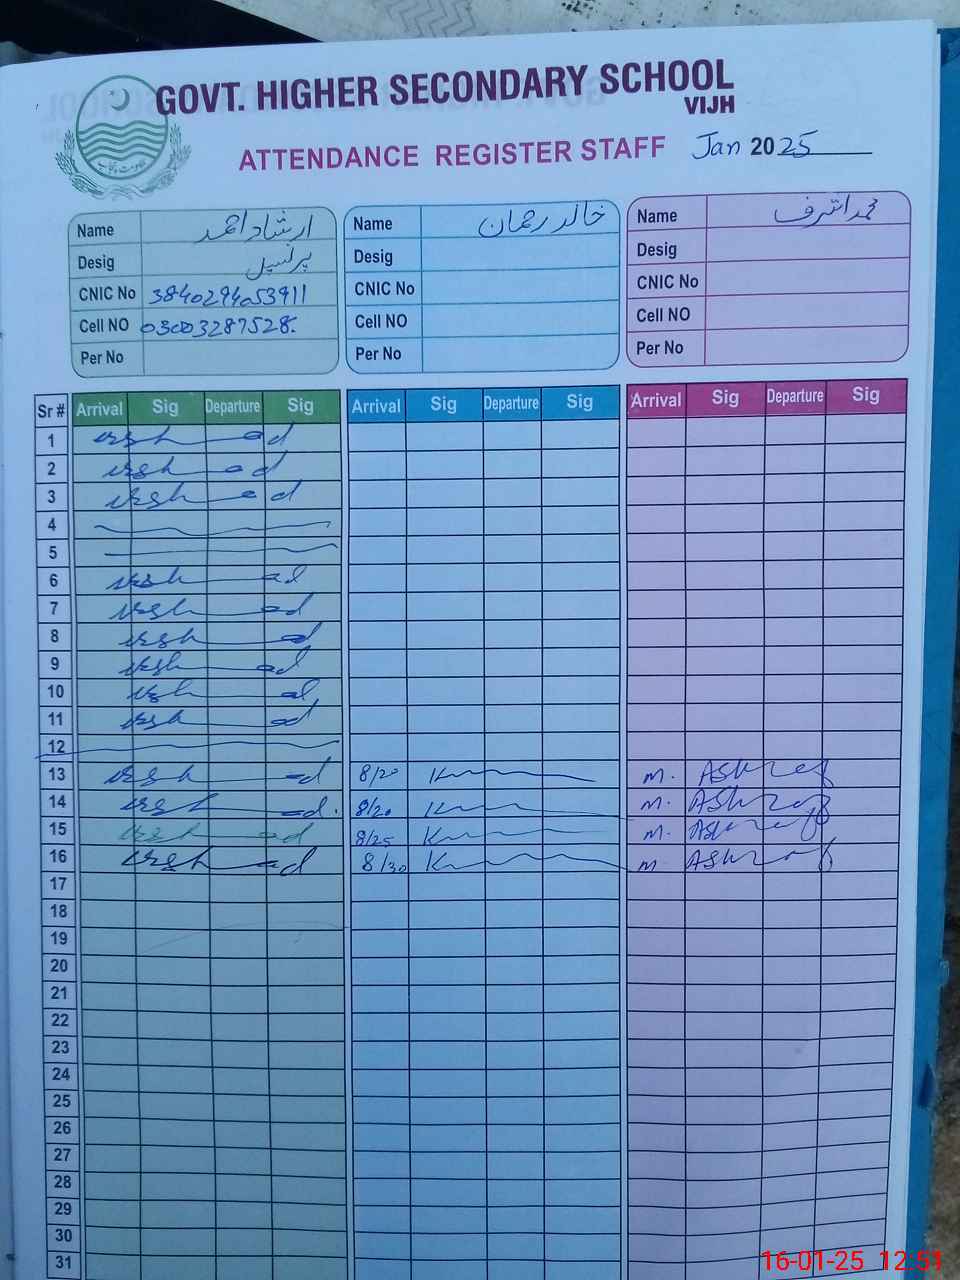 GOVT. HIGHER SECONDARY SCHOOL
VIJH
ATTENDANCE REGISTER STAFF Jan 2025
حکومت پنجاب
Name ارشاد احمد
Desig پرنسپل
CNIC No 3840294053911
Cell NO 03003287528.
Per No
Name خالد رحمان
Desig
CNIC No
Cell NO
Per No
Name محمد اشرف
Desig
CNIC No
Cell NO
Per No
Sr # Arrival Sig Departure Sig Arrival Sig Departure Sig Arrival Sig Departure Sig
1 irshad
2 irshad
3 irshad
4
5
6 irshad
7 irshad
8 irshad
9 irshad
10 irshad
11 irshad
12
13 irshad 8/20 M. Ashraf
14 irshad. 8/20 M. Ashraf
15 irshad 8/25 M. Ashraf
16 irshad 8/30 M Ashraf
17
18
19
20
21
22
23
24
25
26
27
28
29
30
31
16-01-25 12:51